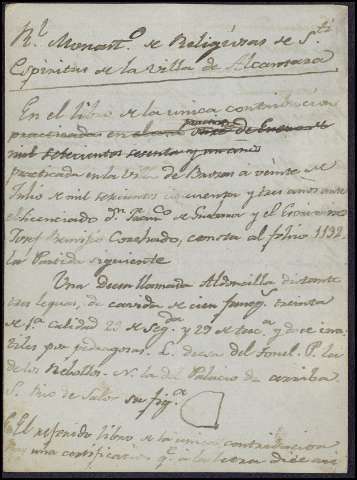 Rl. Monastº. de Religiosas de Sti
Espiritus de la Villa de Alcantara
En el libro de la unica contribucion
practicada en
mil setecientos sesenta y un años
practicada en la Villa de Brozas a veinte de
Julio de mil setecientos cinquenta y tres años ante
el licenciado Dn. de Guzman y el Escrivano
Josef Conchado, consta al folio 1132
la Partida siguiente
Una deesa llamada Aldoncilla distante
tres leguas, de cavida de cien faneg. treinta
de 1ª calidad 29 de segda y 29 de terca y doce inu
tiles por pedragosas. L. deesa del P. la
de los Rebollos. N. la del Palacio de arriba
S. Rivo de Salor su figª
El referido libro de la unica contribucion
hay una certificacion q. a la letra dice asi